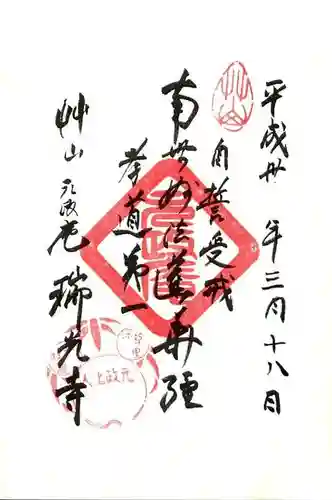 平成卅年三月十八日
自誓受戒
南無妙法蓮華経
孝道第一
艸山元政庵瑞光寺
艸山
元政上人